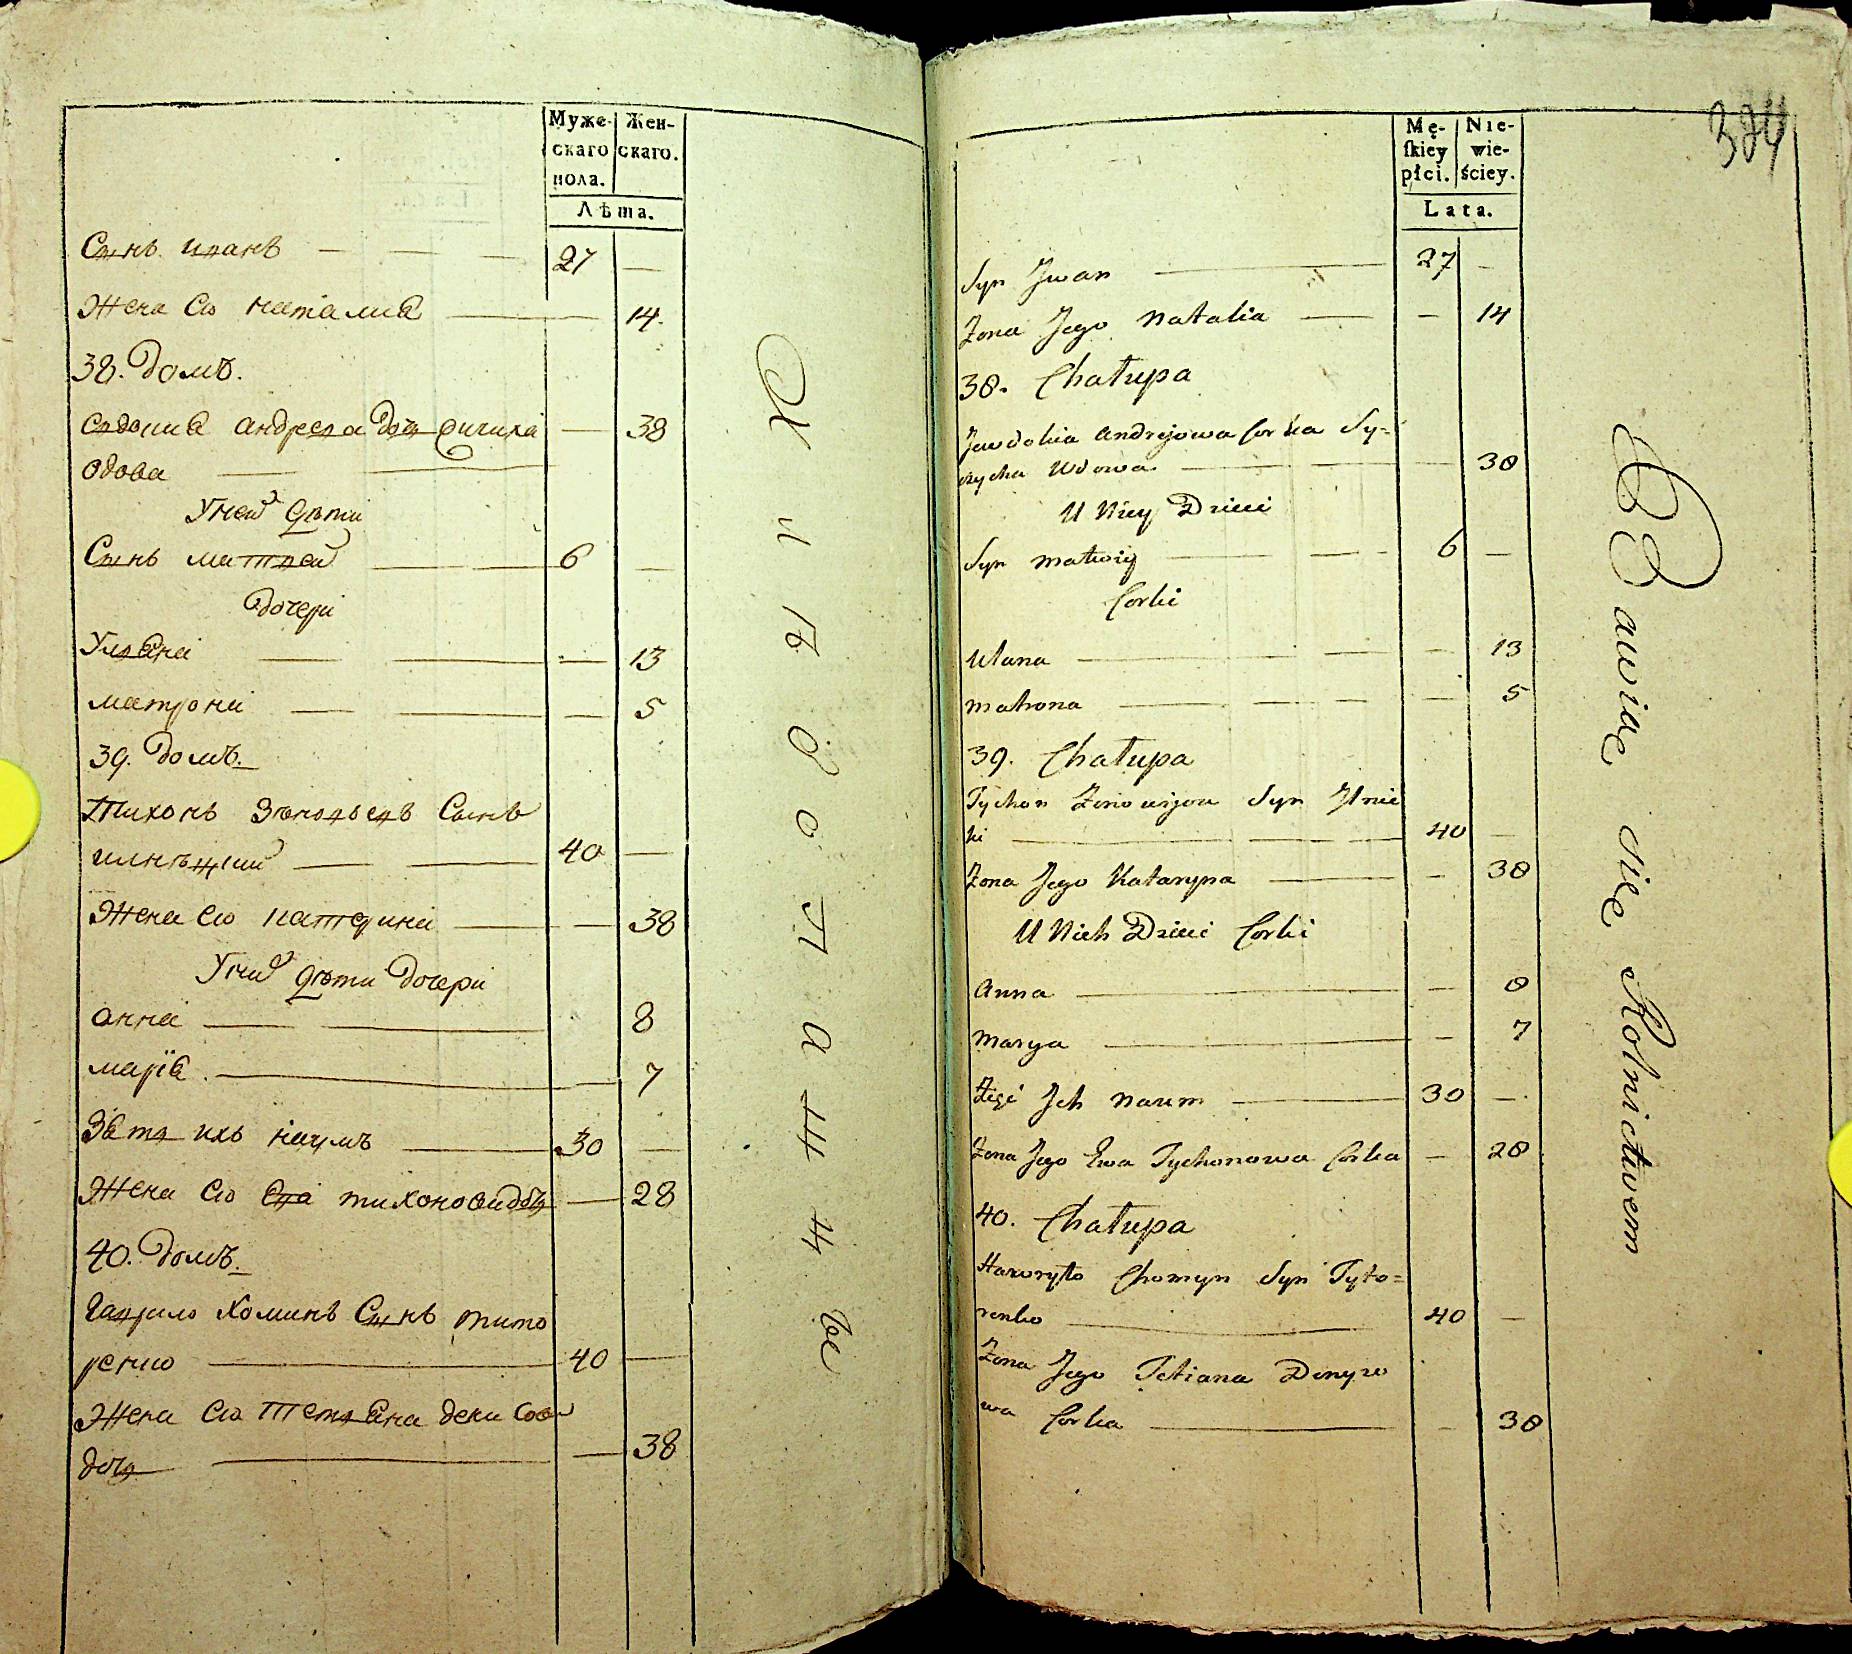 Муже-
скаго
пола.
Жен-
скаго.
Лѣта.
Сынъ иванъ 27
Жена его наталия 14.
38. Домъ.
андреева дочь сичиха 38
вдова
У ней дѣти
Сынъ матвей 6
дочери
Уляна 13
матрона 5
39. Домъ.
Тихонъ Зѣновьевъ Сынъ
илнѣцкий 40
Жена его катерина 38
У них дѣти дочери
анна 8
марїя 7
Зять ихъ наумъ 30
Жена его Ева тихонова дочь 28
40. Домъ.
Гаврило Хоминъ Сынъ тито
ренко 40
Жена его Тетяна дени сова
дочь 38
Mę-
ſkiey
płci.
Nie-
wie-
ściey.
Lata.
384
Syn Jwan 27
Zona Jego Natalia 14
38. Chałupa
Jawdokia Andrejowa Corka Sy-
czycha Wdowa 38
U Niey Dzieci
Syn Matwiy 6
Corki
Ulana 13
Matrona 5
39. Chałupa
Tychon Zinowijow Syn Jlnic
ki 40
Zona Jego Kataryna 38
U Nich Dzieci Corki
Anna 8
Marya 7
Zięć Jch Naum 30
Zona Jego Ewa Tychonowa Corka 28
40. Chałupa
Hawryło Chomyn Syn Tyto=
renko 40
Zona Jego Tetiana Denyso
wa Corka 38
Bawią się Rolnictwem